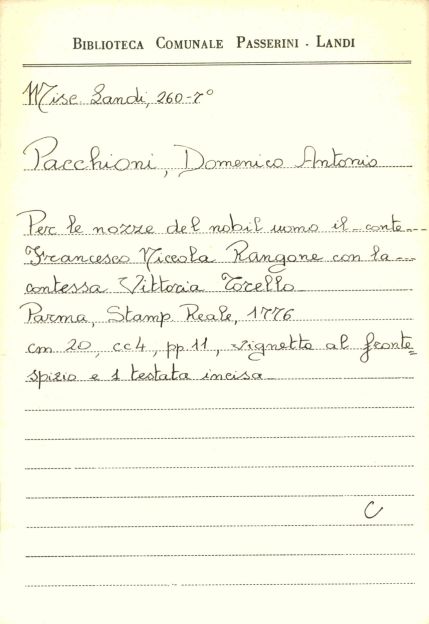 BIBLIOTECA COMUNALE PASSERINI - LANDI
Misc. Landi, 260-7°
Pacchioni, Domenico Antonio
Per le nozze del nobil uomo il conte
Francesco Niccola Rangone con la
contessa Vittoria Torello
Parma, Stamp Reale, 1776
cm 20, cc4, pp. 11, vignetta al fronte=
spizio e 1 testata incisa
C